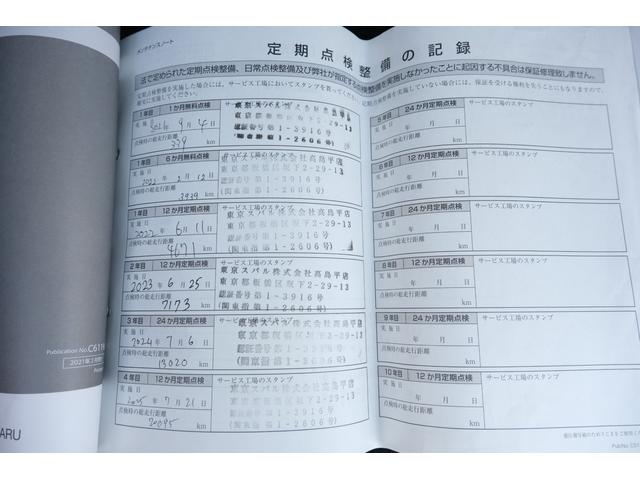 メンテナンスノート
定期点検整備の記録
法で定められた定期点検整備、日常点検整備及び弊社が指定する点検整備を実施しなかったことに起因する不具合は保証修理致しません。
1年目 1か月無料点検
実施日 2021年 9月 4日
点検時の総走行距離
339 km
東京スバル株式会社高島平店
東京都板橋区坂下2-29-13
認証番号第1-3916号
(関東指第1-2606号)
1年目 6か月無料点検
サービス工場のスタンプ
実施日 2022年 2月 12日
点検時の総走行距離
3939 km
東京スバル株式会社高島平店
東京都板橋区坂下2-29-13
認証番号第1-3916号
(関東指第1-2606号)
1年目 12か月定期点検
サービス工場のスタンプ
実施日 2022年 6月 11日
点検時の総走行距離
4671 km
東京スバル株式会社高島平店
東京都板橋区坂下2-29-13
認証番号第1-3916号
(関東指第1-2606号)
2年目 12か月定期点検
サービス工場のスタンプ
実施日 2023年 6月 25日
点検時の総走行距離
7173 km
東京スバル株式会社高島平店
東京都板橋区坂下2-29-13
認証番号第1-3916号
(関東指第1-2606号)
3年目 24か月定期点検
実施日 2024年 7月 6日
点検時の総走行距離
13020 km
東京スバル株式会社高島平店
東京都板橋区坂下2-29-13
認証番号第1-3916号
(関東指第1-2606号)
4年目 12か月定期点検
サービス工場のスタンプ
実施日 2025年 7月 21日
点検時の総走行距離
km
東京スバル株式会社高島平店
東京都板橋区坂下2-29-13
認証番号第1-3916号
(関東指第1-2606号)
5年目 24か月定期点検
サービス工場のスタンプ
実施日 年 月 日
点検時の総走行距離
km
6年目 12か月定期点検
サービス工場のスタンプ
実施日 年 月 日
点検時の総走行距離
km
7年目 24か月定期点検
サービス工場のスタンプ
実施日 年 月 日
点検時の総走行距離
km
8年目 12か月定期点検
サービス工場のスタンプ
実施日 年 月 日
点検時の総走行距離
km
9年目 24か月定期点検
サービス工場のスタンプ
実施日 年 月 日
点検時の総走行距離
km
10年目 12か月定期点検
サービス工場のスタンプ
実施日 年 月 日
点検時の総走行距離
km
Publication No.
2021年
ARU